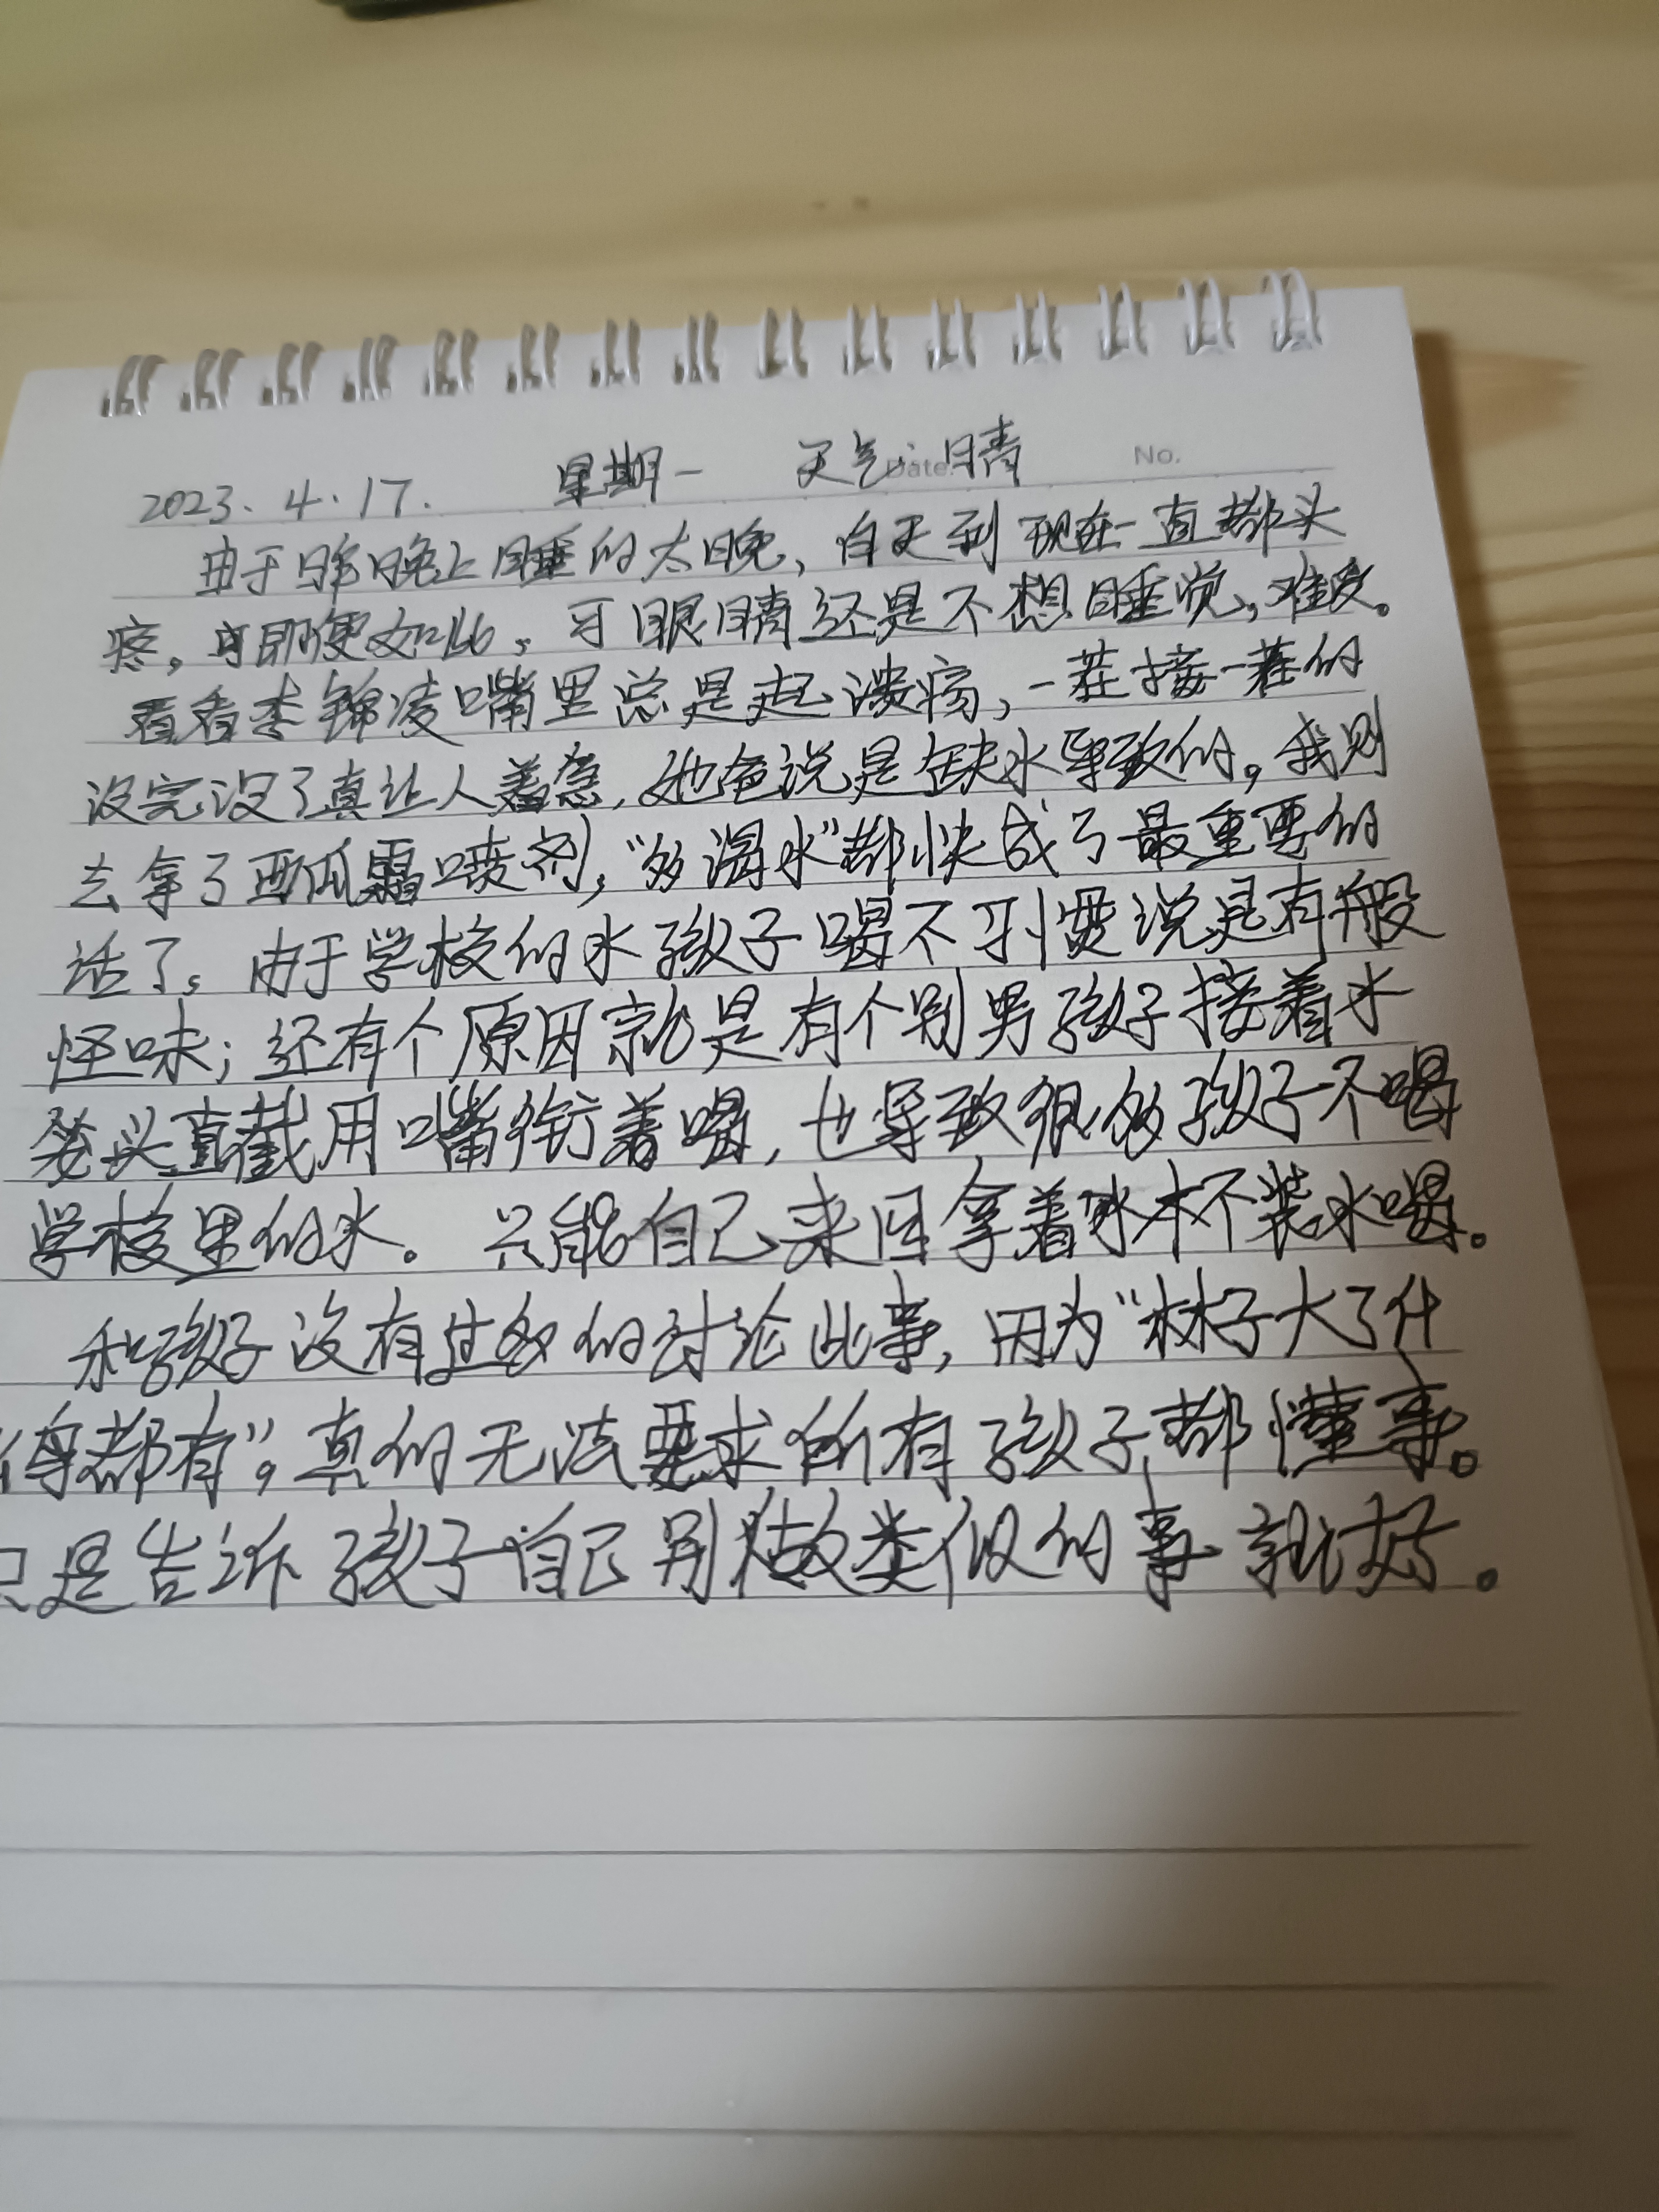 2023.4.17. 星期一 天气:晴
Date. No.
由于昨晚上睡的太晚,白天到现在一直都头
疼,可即便如此。可眼睛还是不想睡觉,难受。
看看李锦凌嘴里总是起溃疡,一茬接一茬的
没完没了真让人着急,她爸说是缺水导致的。我则
去拿了西瓜霜喷剂,“多喝水”都快成了最重要的
话了。由于学校的水孩子喝不习惯说是有股
怪味;还有个原因就是有个别男孩子接着水
笼头直截用嘴衔着喝,也导致很多孩子不喝
学校里的水。只能自己来回拿着水杯装水喝。
和孩子没有过多的讨论此事,因为“林子大了什
么鸟都有”。真的无法要求所有孩子都懂事。
只是告诉孩子自己别做类似的事就好。